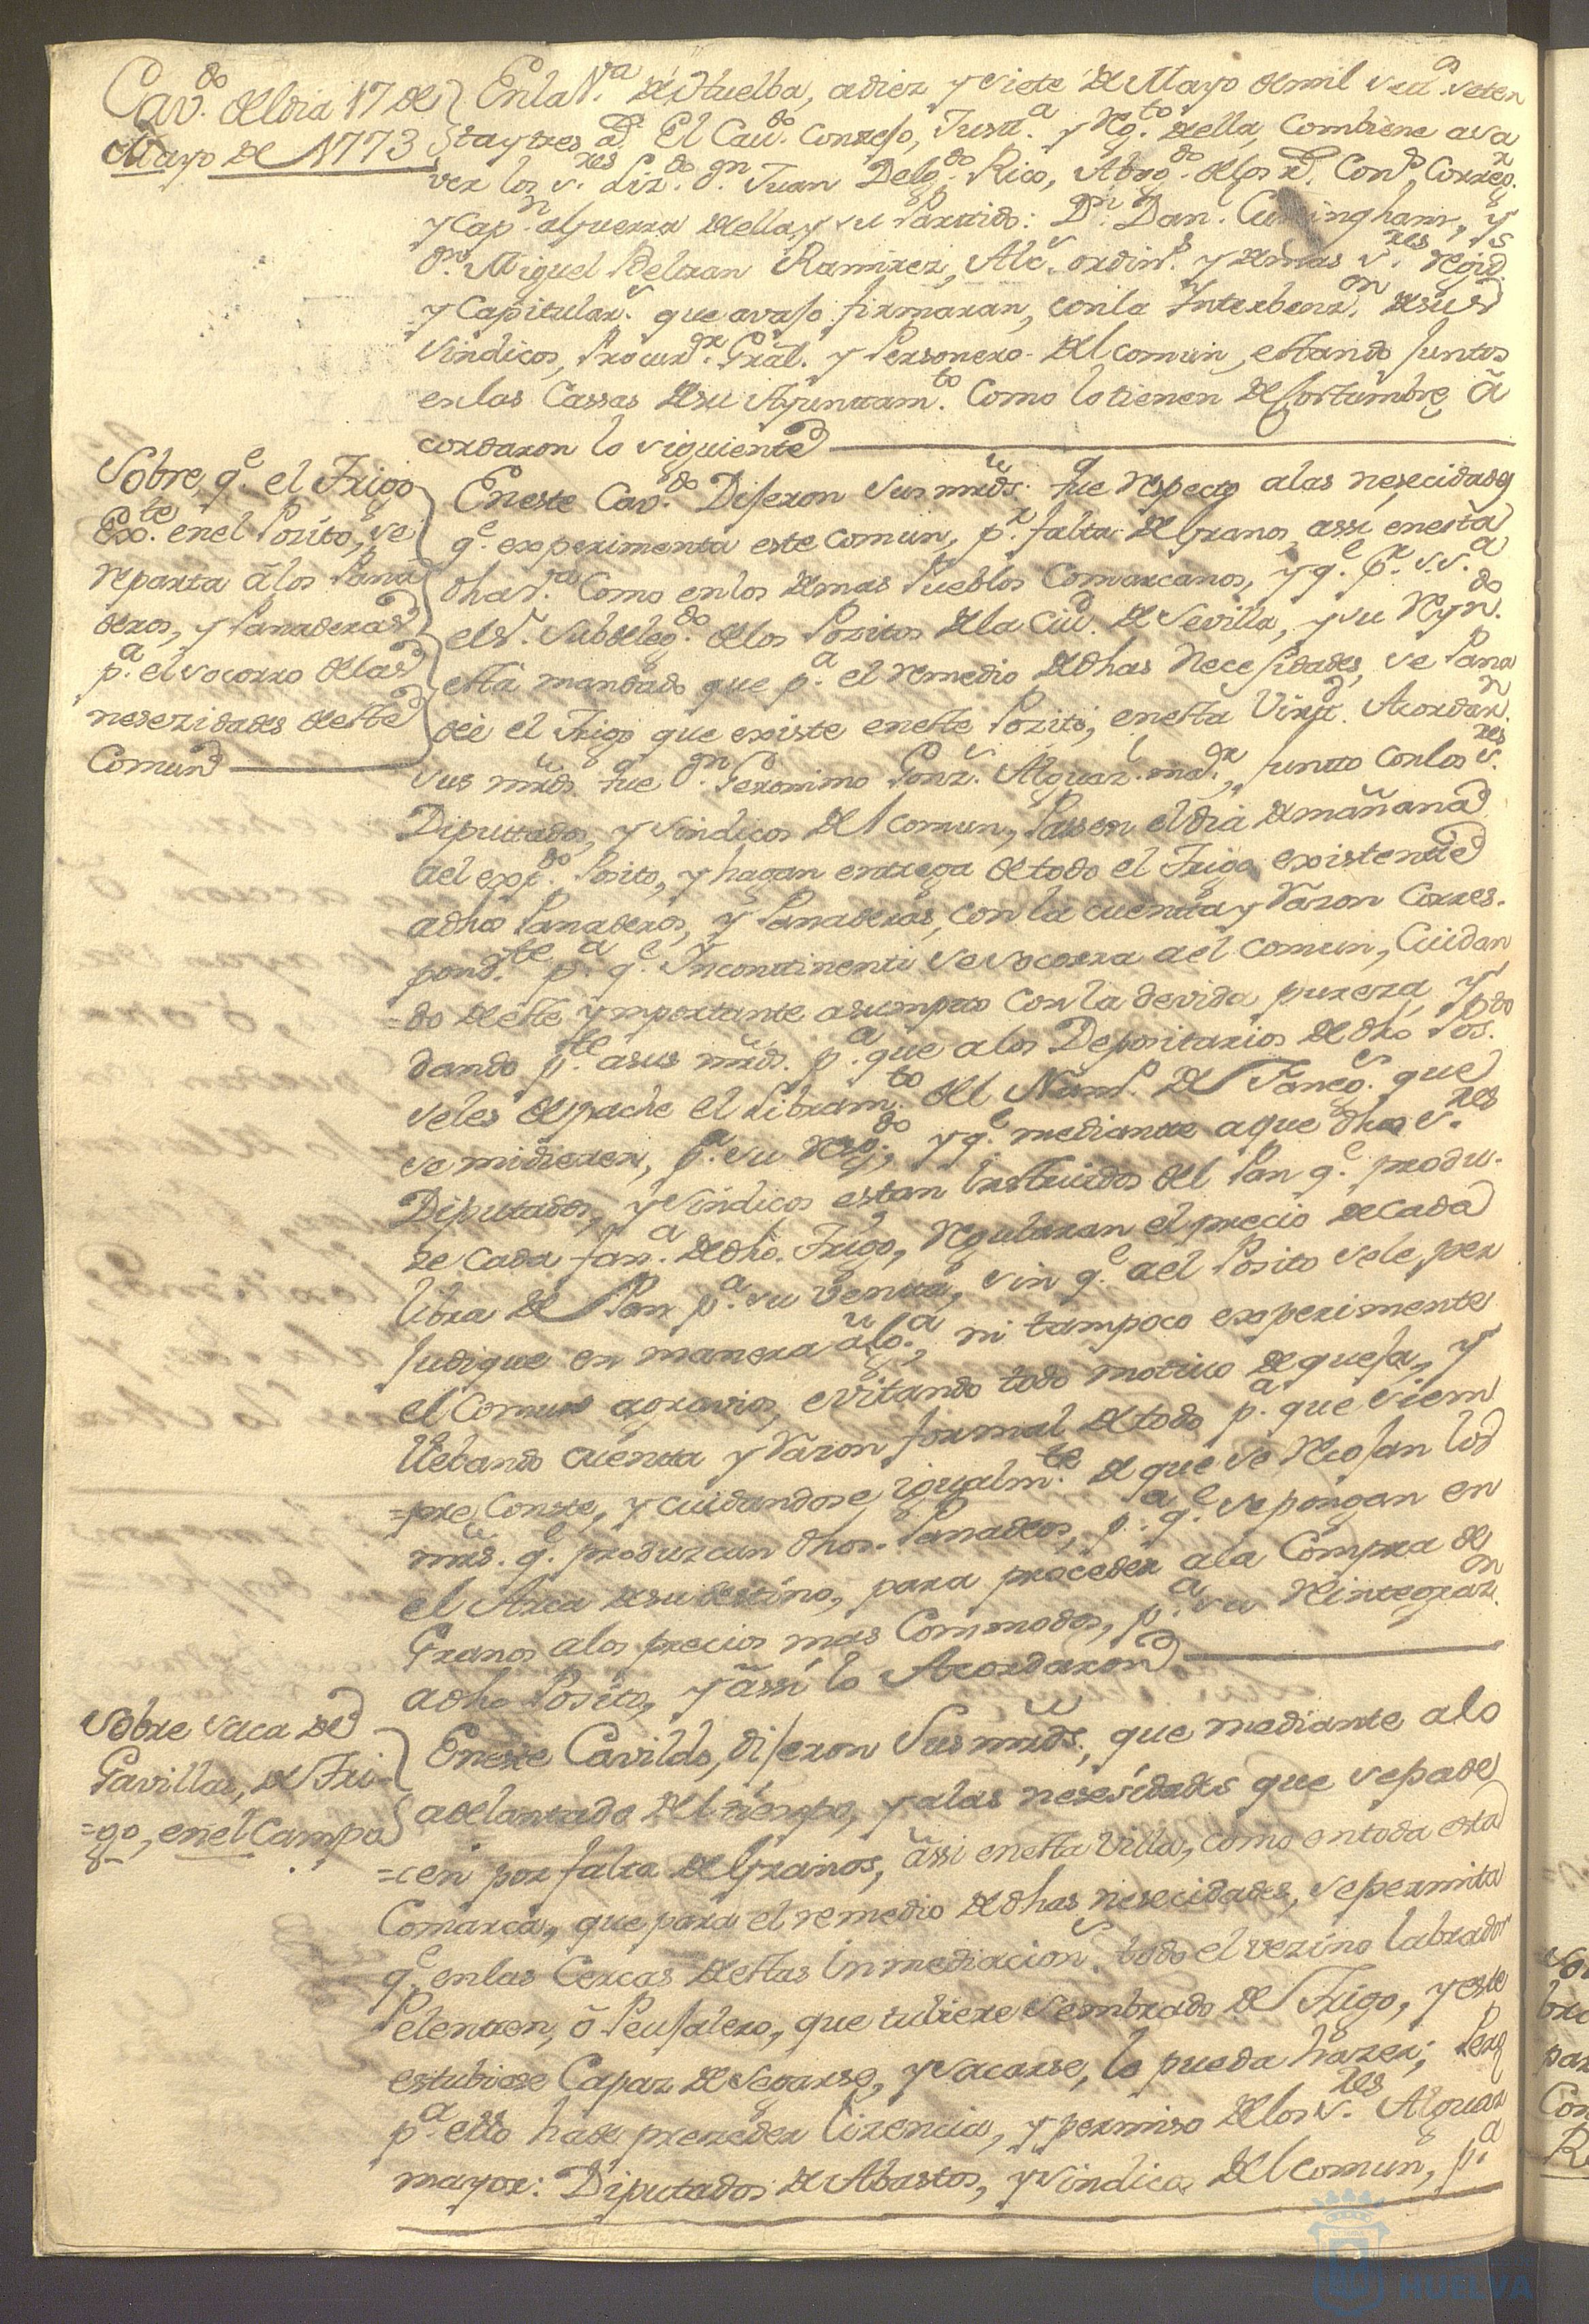 Cav.do del dia 17 de
Mayo de 1773
En la V.a de Huelba, a diez y siete de Mayo de mil set.s seten
ta y tres a.s El Cav.do Consejo, Just.a y Reg.to de ella, combiene a sa
ver los s.res Liz.do d.n Juan Delg.do Rico, Abog.do de los R.s Con.s, Correg.r
y Cap.n a Guerra de ella, y su Partido: D.n Dan. Cuningham, y
d.n Miguel Beltran Ramirez, Alc.s ordin.s y demas s.res Regid.s
y Capitular.s que avajo firmaran, con la Interbenz.on de sus
Sindicos, Procur.dr Gral. y Personero del comun, estando juntos
en las Cassas de su Ayuntam.to Como lo tienen de costumbre, ã
cordaron lo siguiente
Sobre, q.e el Trigo
Ex.te en el Posito, se
reparta â los Pana
deros, y Panaderas
p.a el socorro de las
nesezidades de este
Comun
En este Cav.do Dijeron sus mrds. que respecto a las nesecidades
q.e experimenta este comun, p.r falta de Granos, assi en esta
dha V.a Como en los demas Pueblos Comarcanos, y q.e p.r s.s.a
el s.r Subdeleg.do de los Pozitos de la Ciud. de Sevilla, y su Reyn.do
està mandado que p.a el remedio de dhas Necesidades, se Pana
deè el Trigo que existe en este Pozito, en esta Virtd. Acordar.n
sus mrds. que d.n Geronimo Gonz.s Alguaz.l ma.or, junto con los s.res
Diputtados, y Sindicos del comun, Passen el dia de mañana
a el exp.do Posito, y hagan entrega de todo el Trigo existente
a dhos Panaderos, y Panaderas, con la cuenta y Razon Corres-
pond.te p.a q.e Incontinenti se socorra a el comun, Cuidan
=do de este ymportante asumpto con la devida pureza, y
dando p.te a sus mrds. p.a que a los Depositarios de dho Pos.do
se les despache el Libram.to del Num.o de Faneg.s que
se midieren, p.a su resg.do, y q.e mediante a que dhos s.res
Diputados, y Sindicos estan Instruidos del Pan q.e produ-
ze cada fan.a de dho. Trigo, Regularan el precio de cada
libra de Pan p.a su Venta, sin q.e a el Posito se le per
judique en manera alg.a, ni tampoco experimente
el Comun agravios, evitando todo motivo de queja, y
llebando cuenta y Razon formal de todo p.a que siem
=pre Conste, y cuidandose, igualm.te de que se Recojan los
mrs. q.e produzcan dhos. Panaderos, p.a q.e se pongan en
el Arca de su destino, para proceder a la Compra de
Granos a los precios mas Commodos, p.a su Reintegraz.on
a dho Posito, y assi lo Acordaron
Sobre saca de
Gavillas, de Tri
=go, en el Campo
En este Cavildo, dijeron Sus mrds., que mediante a lo
adelantado del tiempo, y a las nesesidades que se pade
=cen por falta de Granos, assi en esta Villa, como en toda esta
Comarca, que para el remedio de dhas nesecidades, se permita
q.e en las Cercas de estas Inmediacion.s todo el vezino labrador
Pelentrin, ô Peujalero, que tubiere sembrado de Trigo, y este
estubiese Capaz de Segarse, y Sacarse, lo pueda hazer; Pero
p.a ello ha de preceder lizencia, y permiso de los s.res Alguaz
mayor: Diputados de Abastos, y Sindicos del comun, p.a
HUELVA